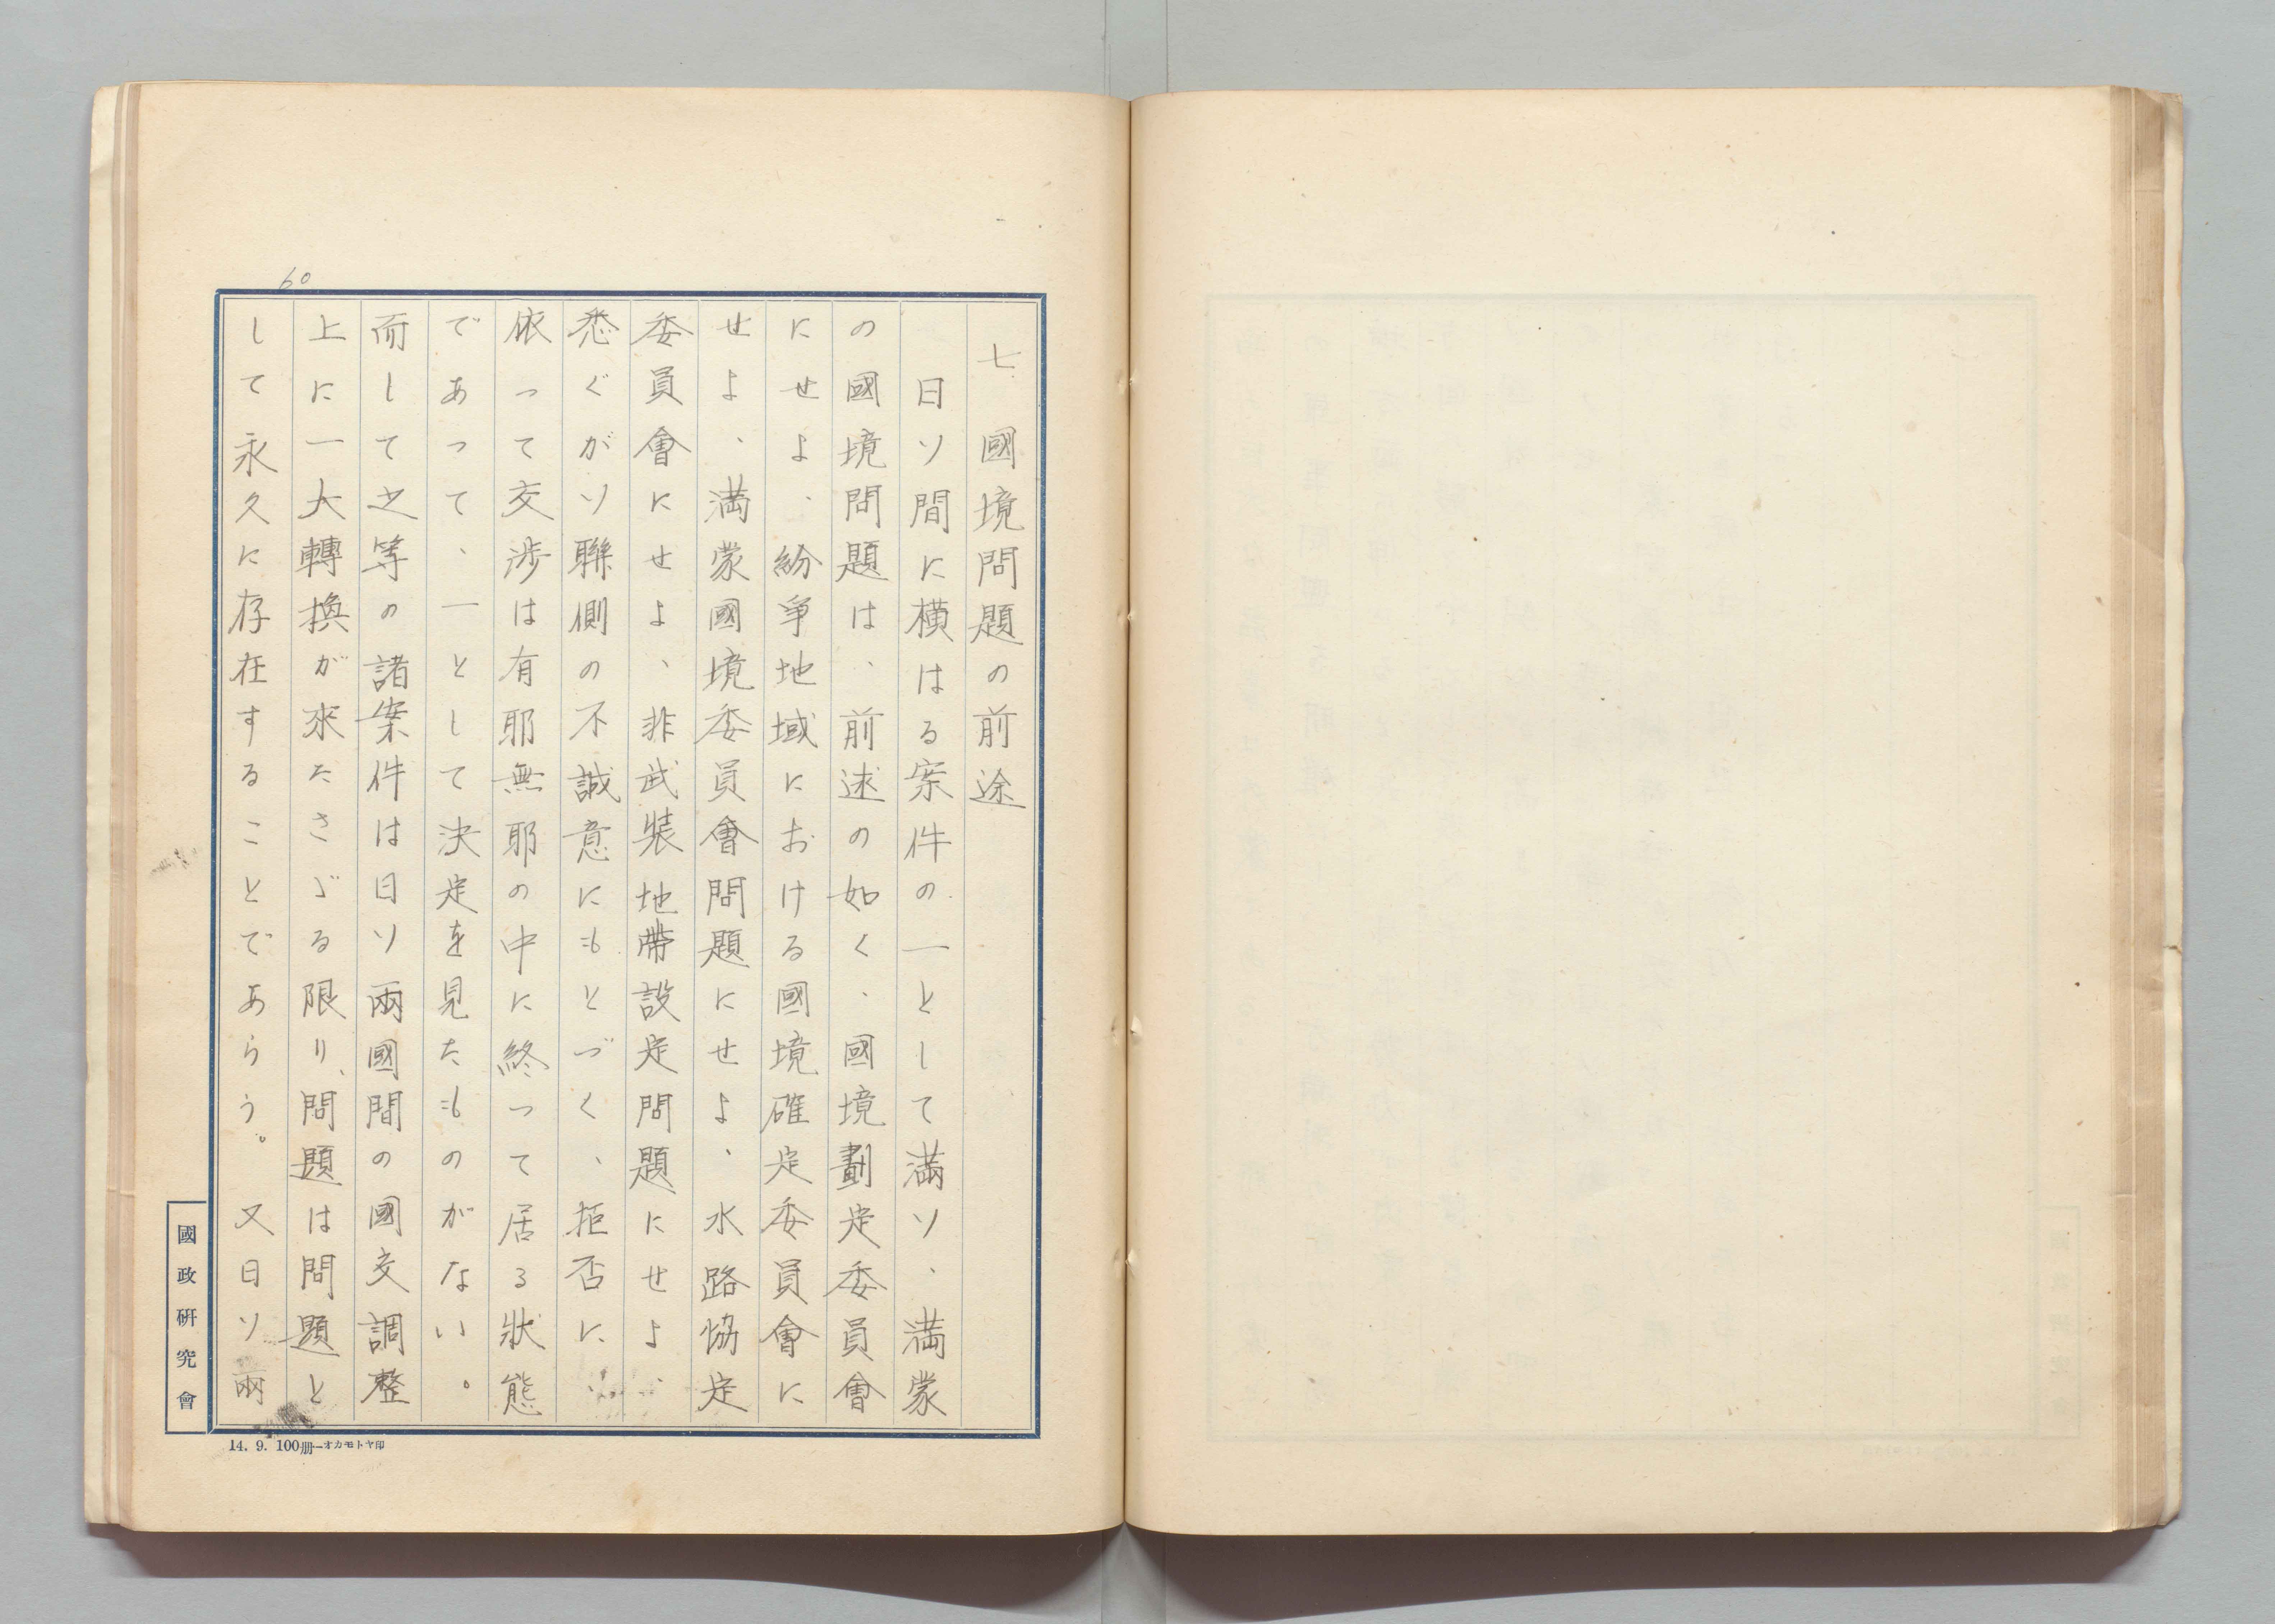 60
七　國境問題の前途
日ソ間に横はる案件の一として満ソ、満蒙
の國境問題は、前述の如く、國境劃定委員會
にせよ、紛爭地域における國境確定委員會に
せよ、満蒙國境委員會問題にせよ、水路協定
委員會にせよ、非武装地帶設定問題にせよ、
悉ぐがソ聯側の不誠意にもとづく、拒否に、
依って交渉は有耶無耶の中に終って居る狀態
であって、一として決定を見たものがない。
而して之等の諸案件は日ソ兩國間の國交調整
上に一大轉換が來たさゞる限り、問題は問題と
して永久に存在することであらう。又日ソ兩
國政研究會
14. 9. 100册―オカモトヤ印